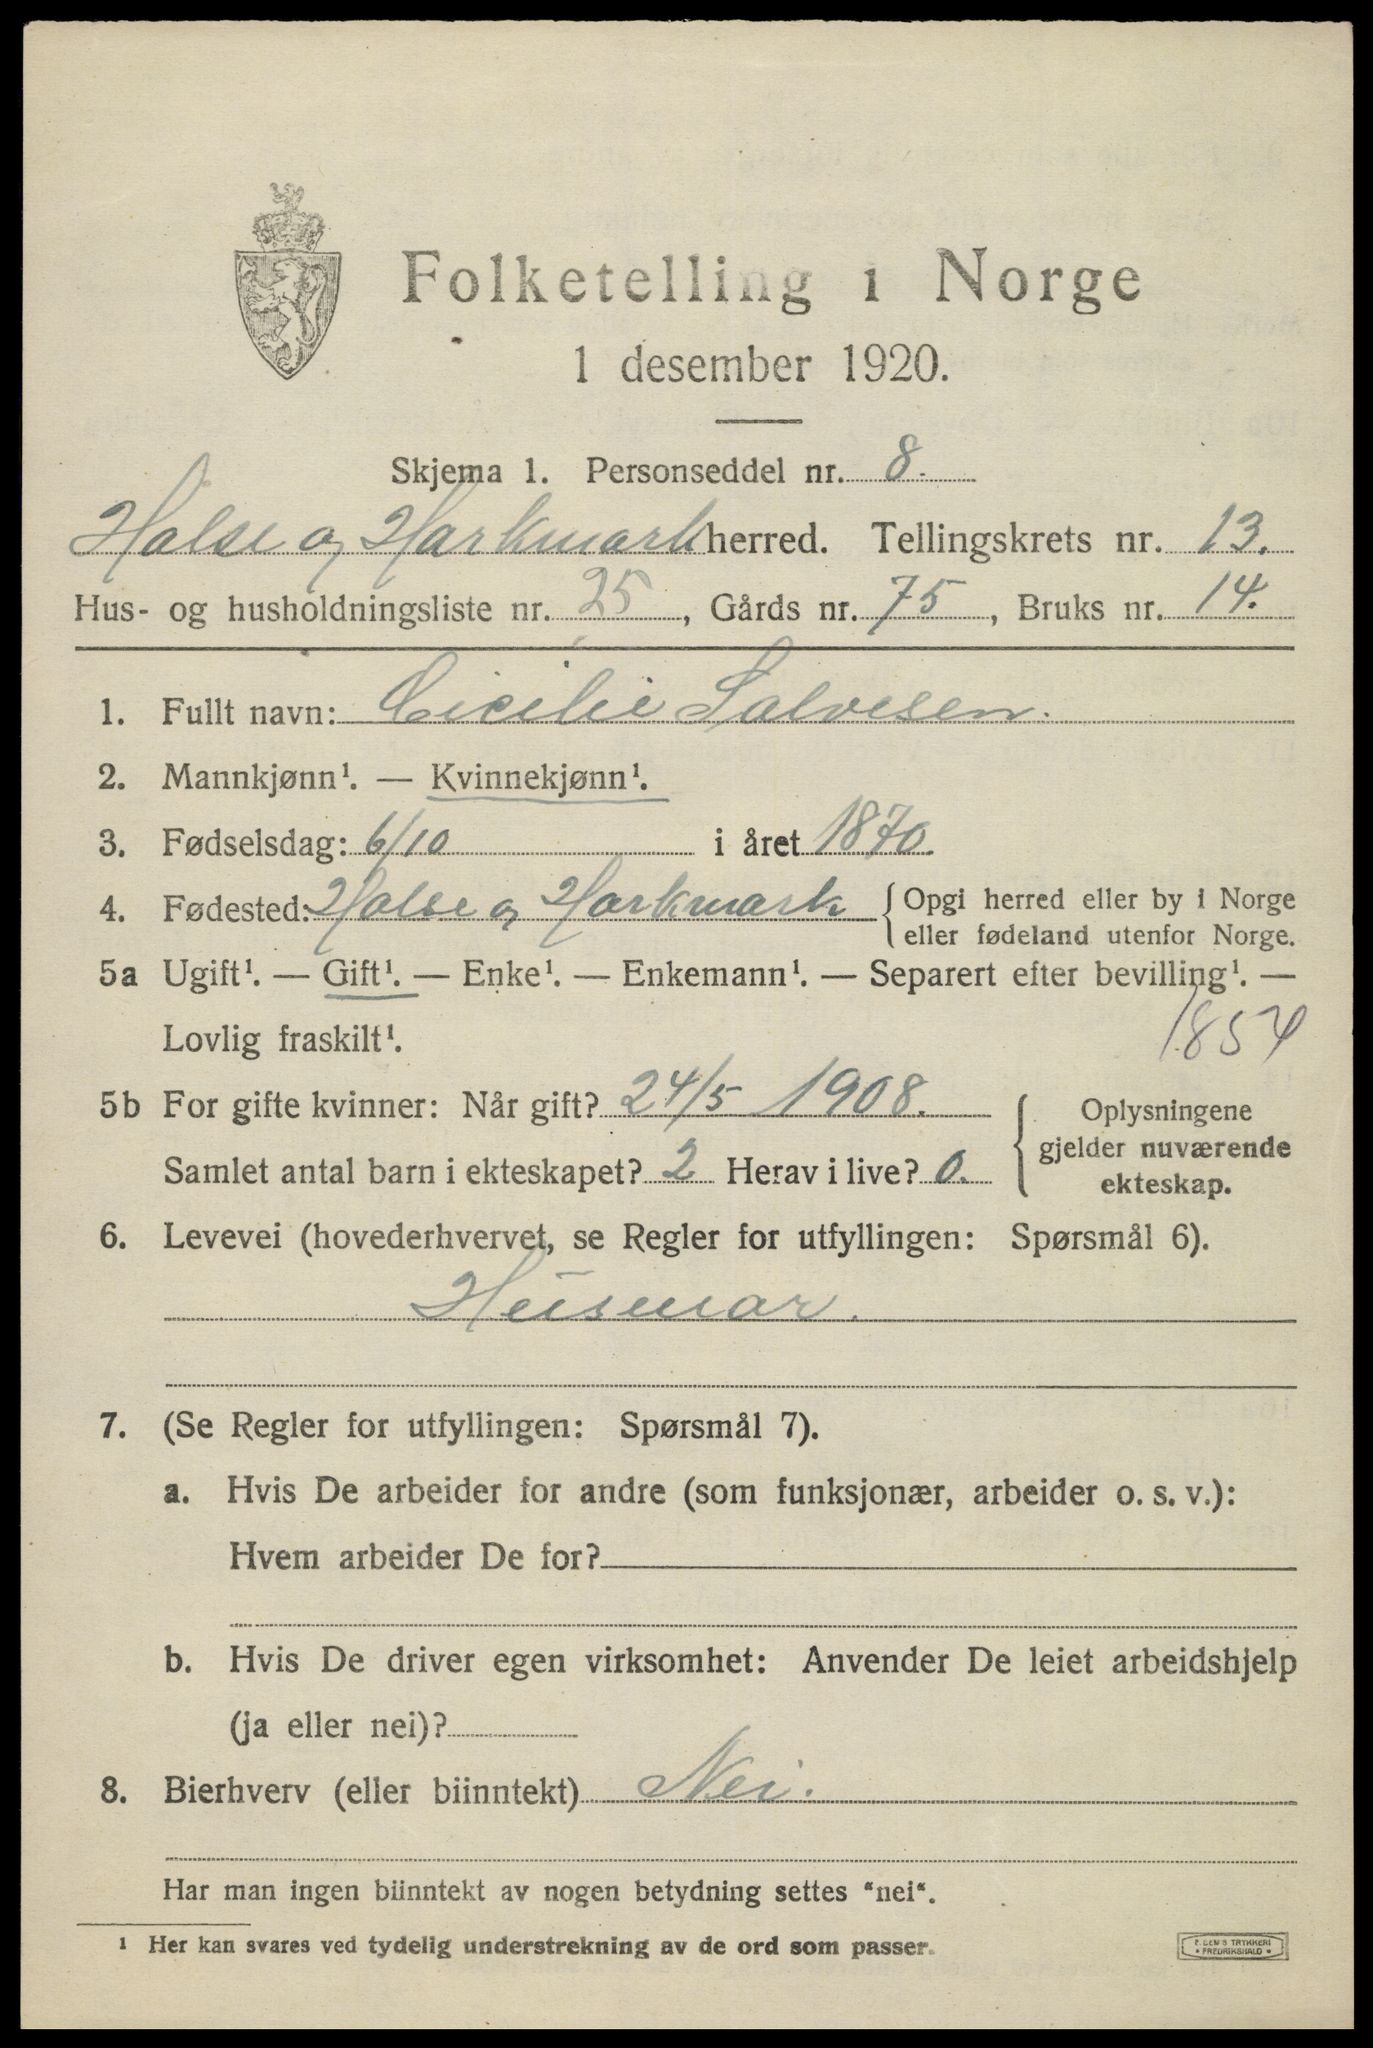 Folketelling i Norge
1 desember 1920.
Skjema 1. Personseddel nr. 8.
Halse og Harkmark herred. Tellingskrets nr. 13.
Hus- og husholdningsliste nr. 25, Gårds nr. 75, Bruks nr. 14.
1. Fullt navn: Cicilie Salvesen.
2. Mannkjønn¹. — Kvinnekjønn¹.
3. Fødselsdag: 6/10 i året 1870.
4. Fødested: Halse og Harkmark { Opgi herred eller by i Norge
eller fødeland utenfor Norge.
5a Ugift¹. — Gift¹. — Enke¹. — Enkemann¹. — Separert efter bevilling¹. —
Lovlig fraskilt¹.
1854
5b For gifte kvinner: Når gift? 24/5 1908.
Samlet antal barn i ekteskapet? 2 Herav i live? 0.
Oplysningene
gjelder nuværende
ekteskap.
6. Levevei (hovederhvervet, se Regler for utfyllingen: Spørsmål 6).
Husmor.
7. (Se Regler for utfyllingen: Spørsmål 7).
a. Hvis De arbeider for andre (som funksjonær, arbeider o. s. v.):
Hvem arbeider De for?
b. Hvis De driver egen virksomhet: Anvender De leiet arbeidshjelp
(ja eller nei)?
8. Bierhverv (eller biinntekt) Nei.
Har man ingen biinntekt av nogen betydning settes "nei".
¹ Her kan svares ved tydelig understrekning av de ord som passer.
TRYKKERI
FREDRIKSHALD